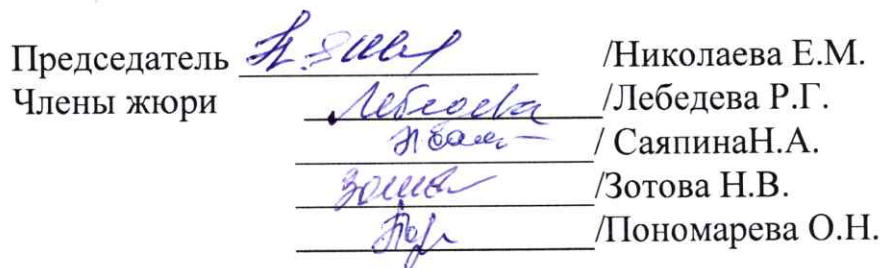 Председатель /Николаева Е.М.
Члены жюри Лебедева /Лебедева Р.Г.
/ СаяпинаН.А.
/Зотова Н.В.
/Пономарева О.Н.